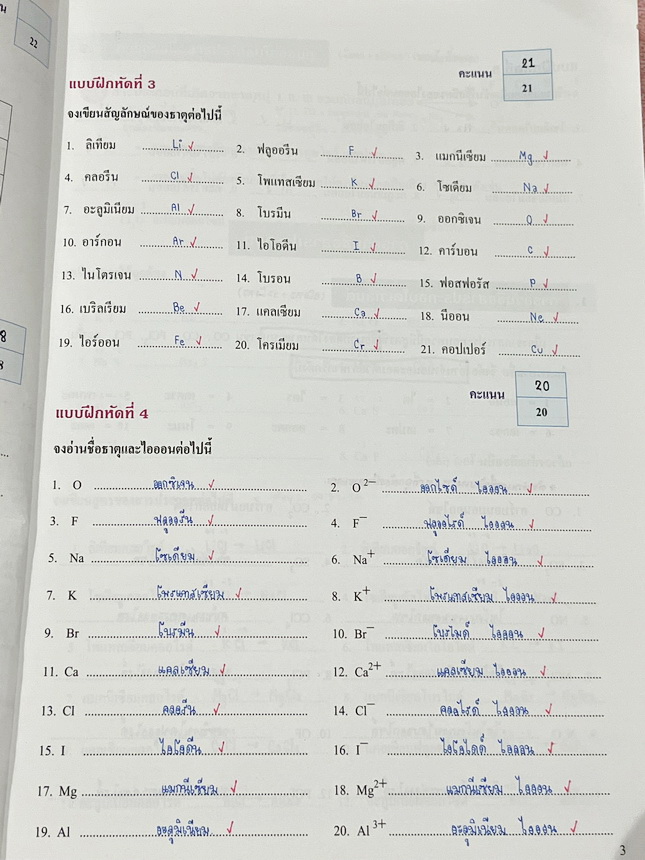 น
22
8
8
คะแนน 21
21
แบบฝึกหัดที่ 3
จงเขียนสัญลักษณ์ของธาตุต่อไปนี้
1. ลิเทียม Li ✓ 2. ฟลูออรีน F ✓ 3. แมกนีเซียม Mg ✓
4. คลอรีน Cl ✓ 5. โพแทสเซียม K ✓ 6. โซเดียม Na ✓
7. อะลูมิเนียม Al ✓ 8. โบรมีน Br ✓ 9. ออกซิเจน O ✓
10. อาร์กอน Ar ✓ 11. ไอโอดีน I ✓ 12. คาร์บอน C ✓
13. ไนโตรเจน N ✓ 14. โบรอน B ✓ 15. ฟอสฟอรัส P ✓
16. เบริลเรียม Be ✓ 17. แคลเซียม Ca ✓ 18. นีออน Ne ✓
19. ไอร์ออน Fe ✓ 20. โครเมียม Cr ✓ 21. คอปเปอร์ Cu ✓
คะแนน 20
20
แบบฝึกหัดที่ 4
จงอ่านชื่อธาตุและไอออนต่อไปนี้
1. O ออกซิเจน ✓ 2. O²⁻ ออกไซด์ ไอออน ✓
3. F ฟลูออรีน ✓ 4. F⁻ ฟลูออไรด์ ไอออน ✓
5. Na โซเดียม ✓ 6. Na⁺ โซเดียม ไอออน ✓
7. K โพแทสเซียม ✓ 8. K⁺ โพแทสเซียม ไอออน ✓
9. Br โบรมีน ✓ 10. Br⁻ โบรไมด์ ไอออน ✓
11. Ca แคลเซียม ✓ 12. Ca²⁺ แคลเซียม ไอออน ✓
13. Cl คลอรีน ✓ 14. Cl⁻ คลอไรด์ ไอออน ✓
15. I ไอโอดีน ✓ 16. I⁻ ไอโอไดด์ ไอออน ✓
17. Mg แมกนีเซียม ✓ 18. Mg²⁺ แมกนีเซียม ไอออน ✓
19. Al อะลูมิเนียม ✓ 20. Al³⁺ อะลูมิเนียม ไอออน ✓
3